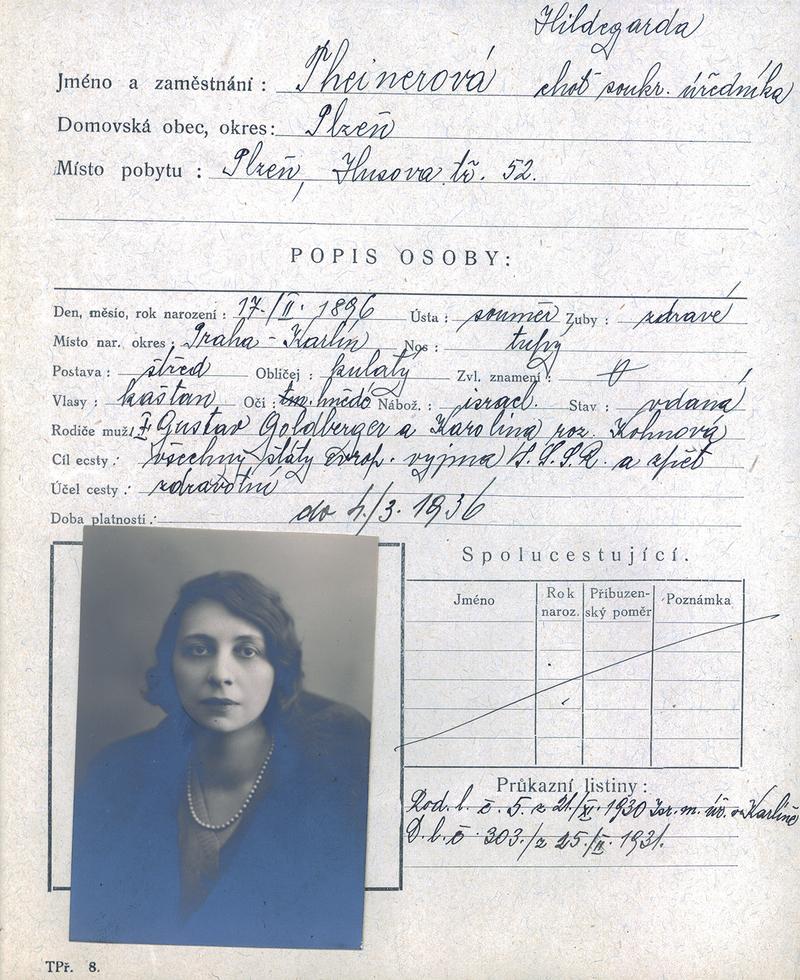 Hildegarda
Jméno a zaměstnání : Theinerová choť soukr. úředníka
Domovská obec, okres: Plzeň
Místo pobytu : Plzeň, Husova tř. 52.
POPIS OSOBY:
Den, měsíc, rok narození : 17./II. 1896 Ústa : souměr Zuby : zdravé
Místo nar. okres : Praha - Karlín Nos : tupý
Postava : střed Obličej : kulatý Zvl. znamení :
Vlasy : kaštan Oči : tm. hnědé Nábož. : israel. Stav : vdaná
Rodiče Gustav Goldberger a Karolina roz. Kohnová
Cíl ecsty : všechny státy evrop. vyjma S.S.S.R. a zpět
Účel cesty : zdravotní
Doba platnosti : do 4/3. 1936
Spolucestující.
Jméno Rok naroz. Příbuzenský poměr Poznámka
Průkazní listiny :
Rod. l. č. 5. z 21/XI. 1930 Isr. m. úř. v Karlíně
D. l. č 303./z 25./II. 1931.
TPř. 8.